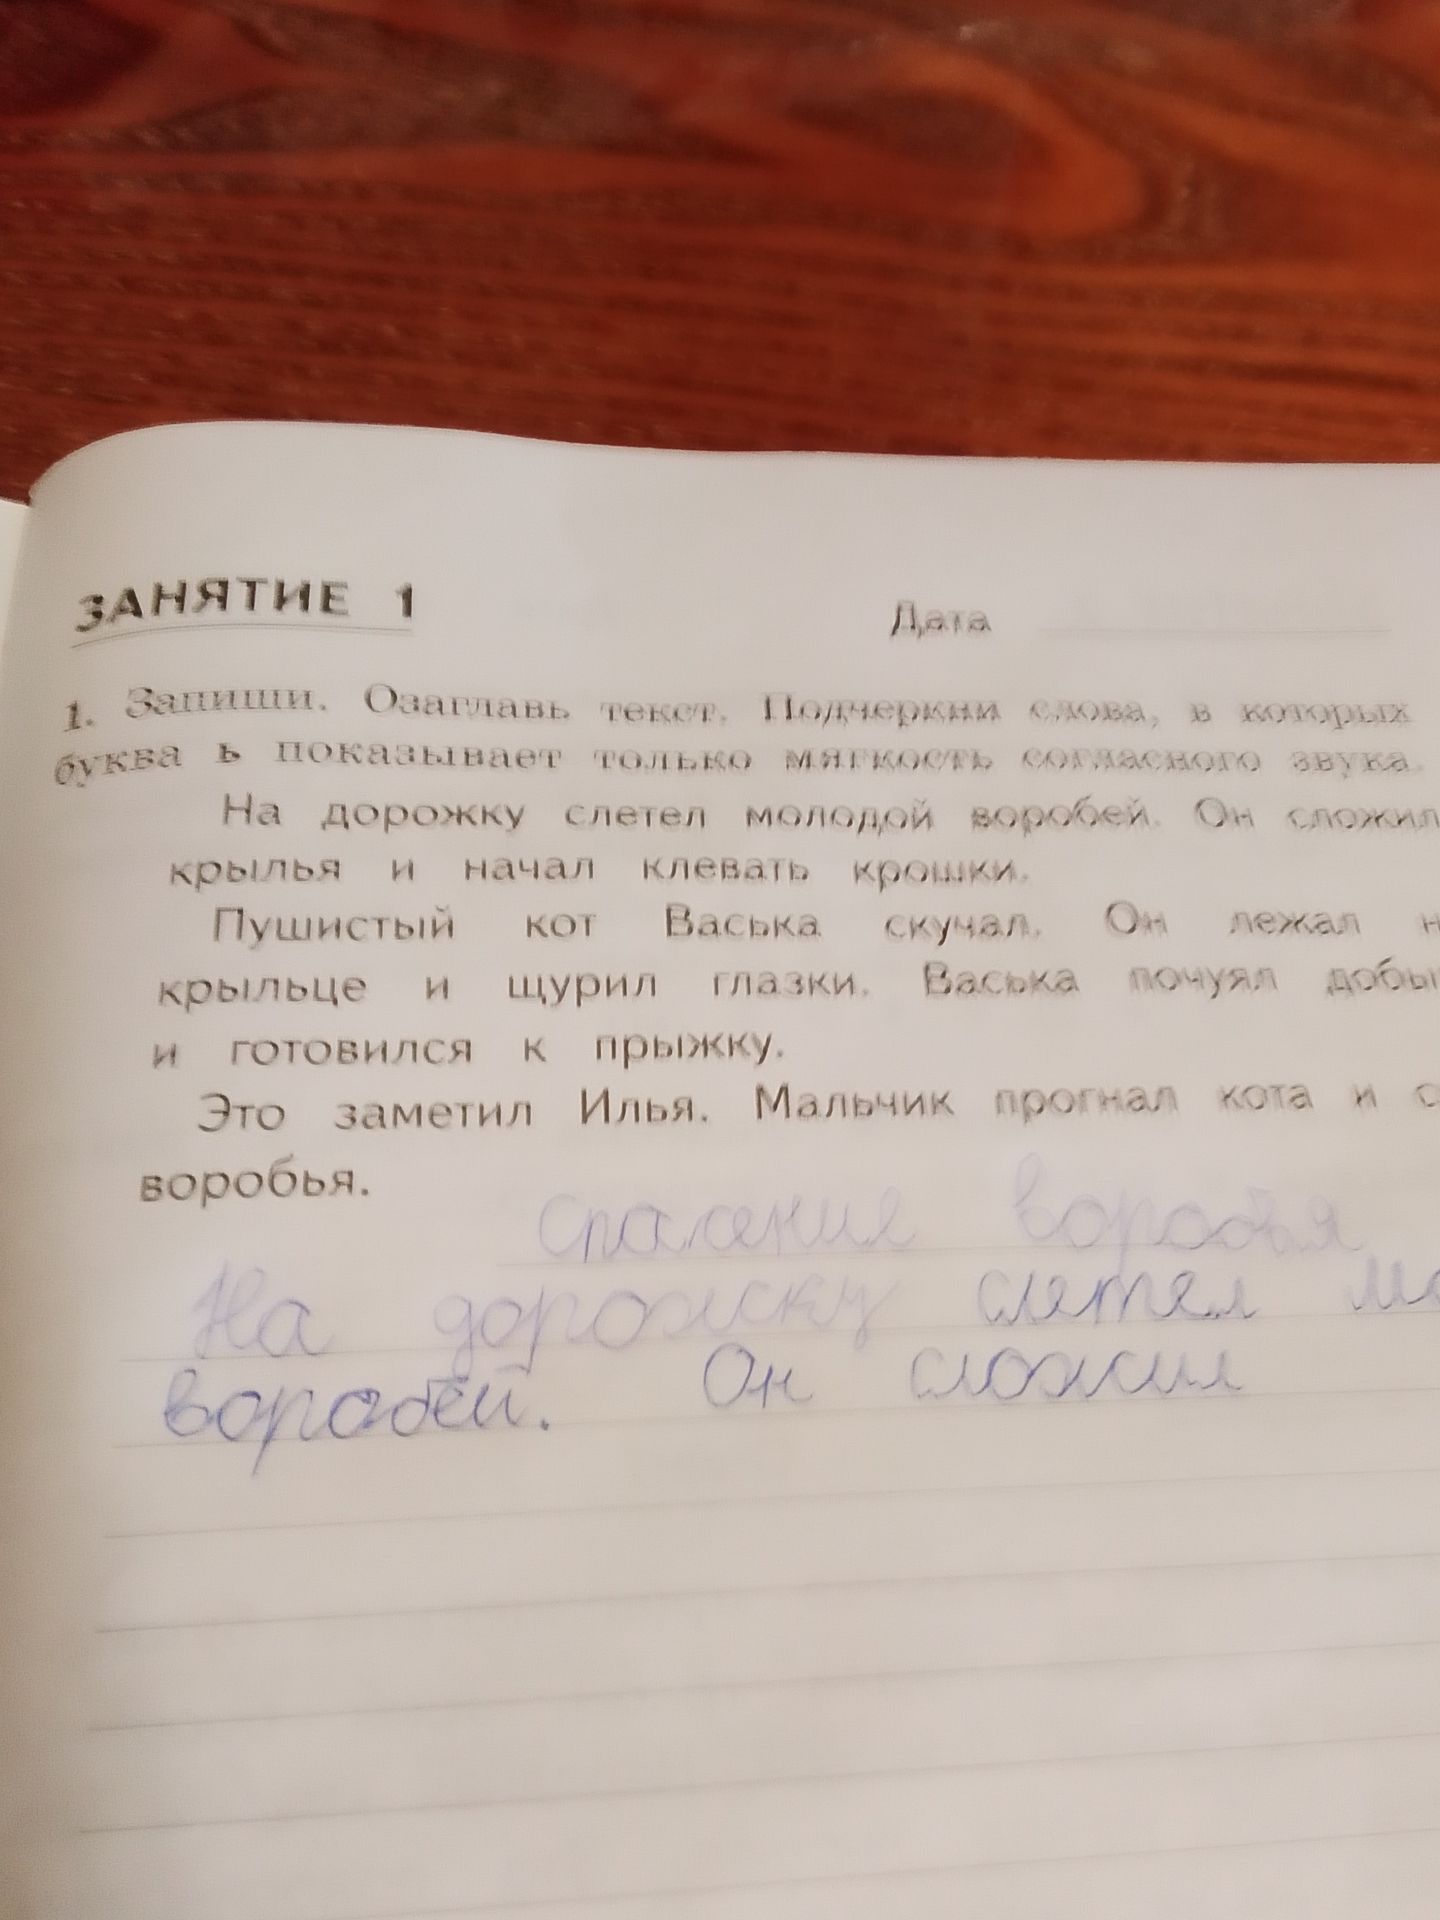 ЗАНЯТИЕ 1
Дата
1. Запиши. Озаглавь текст. Подчеркни слова, в которых
буква ь показывает только мягкость согласного звука.
На дорожку слетел молодой воробей. Он сложил
крылья и начал клевать крошки.
Пушистый кот Васька скучал. Он лежал н
крыльце и щурил глазки. Васька почуял добы
и готовился к прыжку.
Это заметил Илья. Мальчик прогнал кота и с
воробья.
Спасение воробья
На дорожку слетел мо
воробей. Он сложил